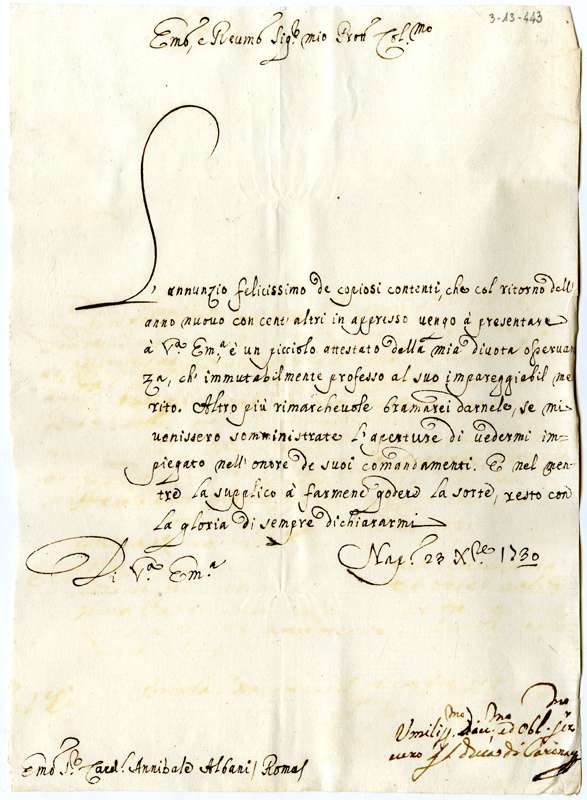 3-13-443
Em̃o, e Reuem̃o Sig.re mio Pron̄ Col.mo
L' annunzio felicissimo de copiosi contenti, che col ritorno dell'
anno nuovo con cent' altri in appresso vengo à presentare
à V.ra Em.a è un picciolo attestato della mia divota osservan
za, ch' immutabilmente professo al suo impareggiabil me
rito. Altro più rimarchevole bramarei darnele, se mi
venissero somministrate l'aperture di vedermi im=
piegato nell' onore de suoi comandamenti. E nel men-
tre la supplico à farmene godere la sorte, resto con
la gloria di sempre dichiararmi
Di V.ra Em.a
Nap.li 23 Xbre 1730
Umiliss.mo diu.mo ed Obl.mo ser
uero
Duca di
Em̃o S.r Card.l Annibale Albani / Roma /